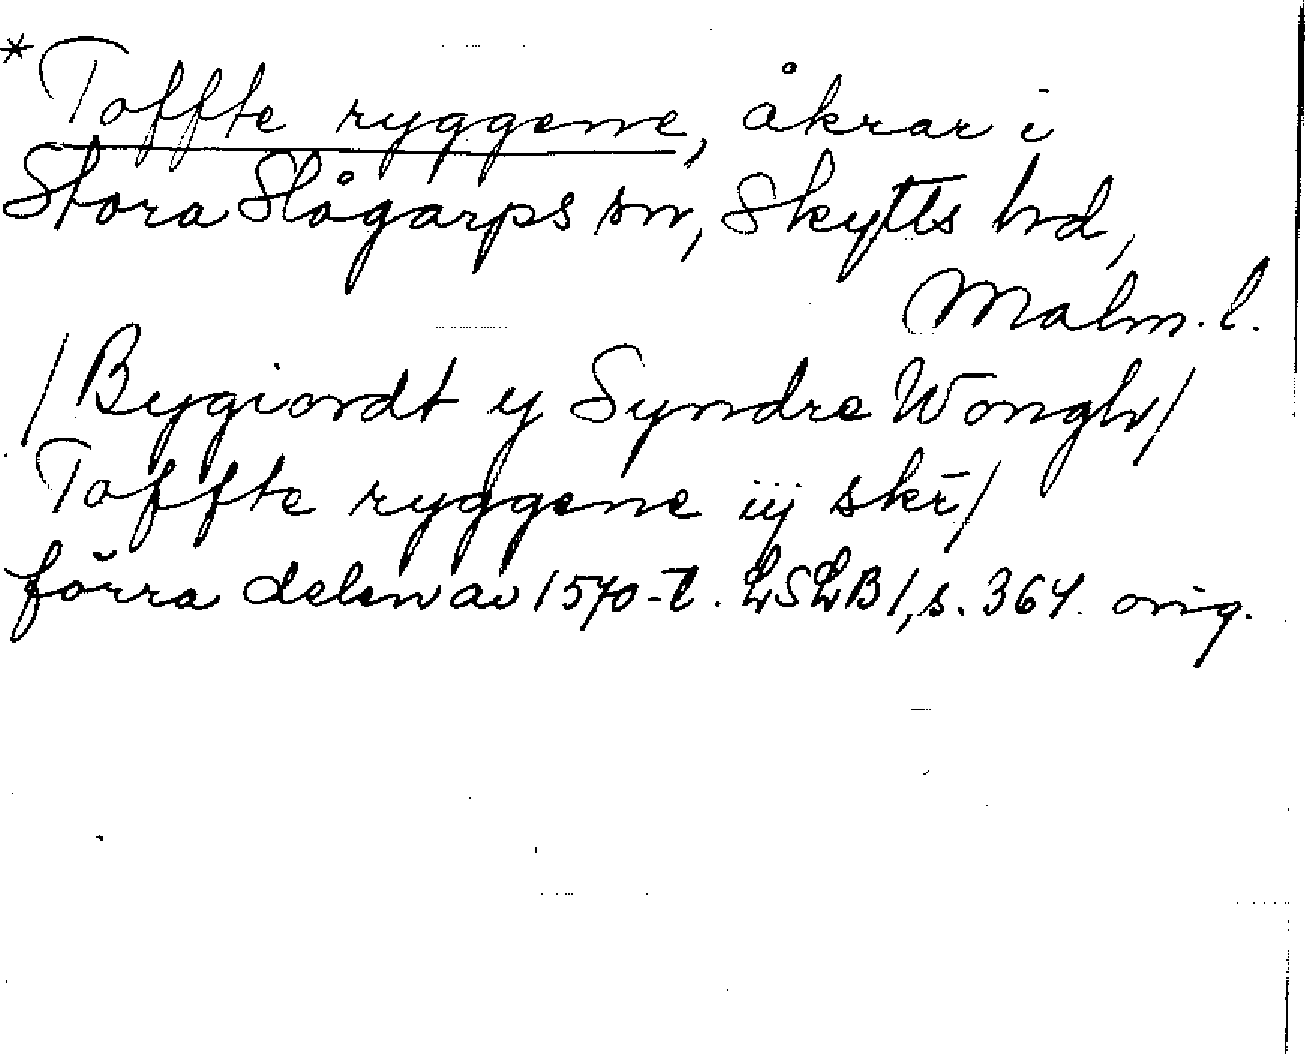 *Toffte ryggene, åkrar i
Stora Slågarps sn, Skytts hd,
Malm. l.
/Bygiordt y Syndre Wongh/
Toffte ryggene iij skr̄/
förra delen av 1570-t. LSLB 1, s. 364. orig.